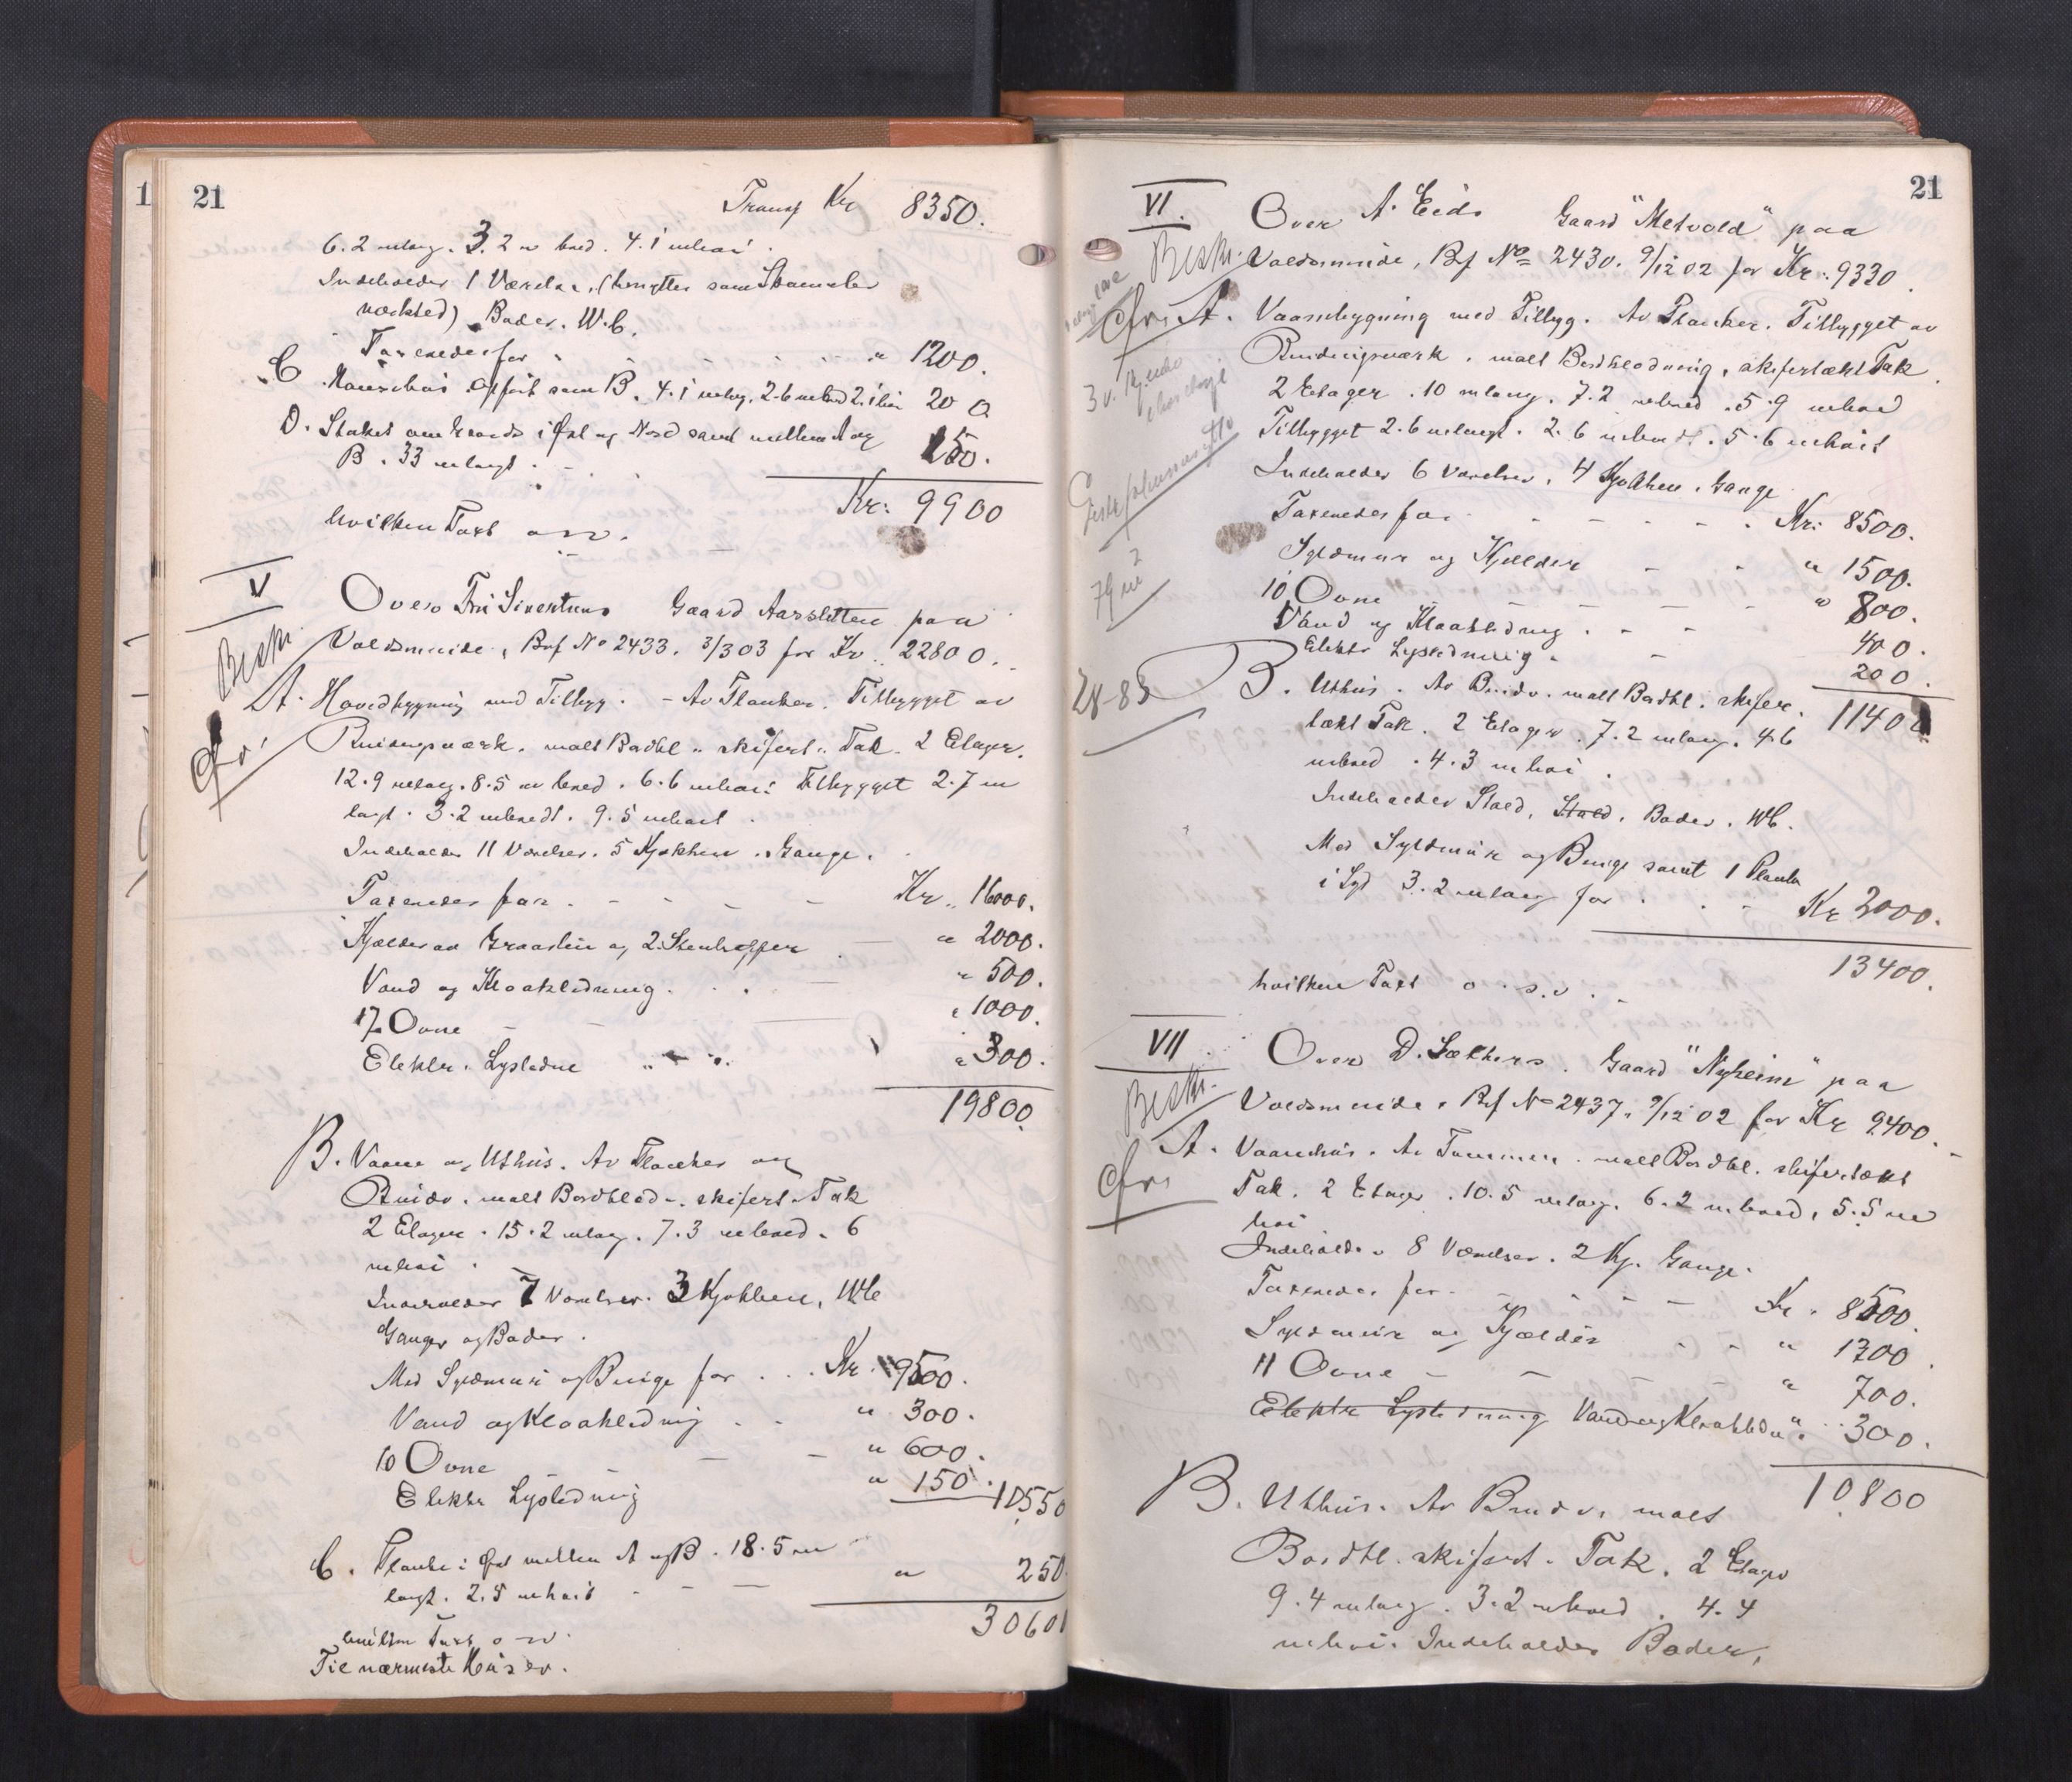 21
Transp Kr 8350.
6.2 m lang. 3.2 m bred. 4.1 m høi.
Indeholder 1 Værelse, (benyttes som
værksted) Boder. W.C.
Taxeredes for " 1200.
C. opført som B. 4.1 m lang, 2.6 m bred 2.1 høi 200
D. Staket om Gaards i Øst og Nord samt mellem A og
B. 33 m langt. 150.
Kr: 9900
hvilken Taxt o s v.
V
Over Frk Sivertsens Gaard Aarsletten paa
Beskr. Voldsminde, Brf No 2433. 3/3 03 for Kr. 22800.
A. Hovedbygning med Tilbyg. - Av Planker. Tilbygget av
cfr. Bindingsværk. malt Bordkl. skifert. Tak. 2 Etager.
12.9 m lang. 8.5 m bred. 6.6 m høi. Tilbygget 2.7 m
langt. 3.2 m bredt. 9.5 m høit.
Indeholder 11 Værelser. 5 Kjøkken. Gange.
Taxeredes for Kr. 16000.
Kjælder av Graasten og 2 Stentrapper " 2000.
Vand og Kloakledning. " 500.
17 Ovne " 1000.
Elektr. Lysledn " 300.
19800
B. Vaane og Uthus. Av Planker og
Bindv. malt Bordklædn. skifert. Tak
2 Etager. 15.2 m lang. 7.3 m bred. 6
m høi.
Indeholder 7 Værelser. 3 Kjøkken, WC
Gange og Boder.
Med Syldmur og Pipe for Kr. 9500.
Vand og Kloakledning " 300.
10 Ovne " 600.
Elektr Lysledning " 150. 10550
C. Planke i Øst mellem A og B. 18.5 m
langt. 2.5 m høit " 250.
30600
hvilken Taxt o s v.
Til nærmeste Huser.
21
VI. Over A. Eids Gaard "Metvold" paa
Beskr. Voldsminde, Brf No 2430. 9/12 02 for Kr. 9330.
cfr. A. Vaanebygning med Tilbyg. Av Planker. Tilbygget av
Bindingsværk. malt Bordklædning, skifertækt Tak.
2 Etager. 10 m lang. 7.2 m bred. 5.9 m høi
Tilbygget 2.6 m langt. 2.6 m bredt. 5.6 m høit
Indeholder 6 Værelser, 4 Kjøkken, Gange
Taxeredes for Kr: 8500.
Syldmur og Kjælder " 1500.
79 m²
10 Ovne " 800.
Vand og Kloakledning 400.
Elektr Lysledning 200.
28-85
11400
B. Uthus. Av Bindv. malt Bordkl. skifer-
tækt Tak. 2 Etager. 7.2 m lang. 4.6
m bred. 4.3 m høi.
Indeholder Stald, Stald, Boder. WC.
Med Syldmur og Binge samt 1 Planke
i Syd 3.2 m lang for Kr 2000.
13400.
hvilken Taxt o. s. v.
VII Over D. Sæthers. Gaard "Nyheim" paa
Beskr. Voldsminde, Brf No 2437. 9/12 02 for Kr 9400.
A. Vaanehus. Av Tømmer. malt Bordkl. skifertækt
cfr. Tak. 2 Etager. 10.5 m lang. 6.2 m bred, 5.5 m
høi.
Indeholder 8 Værelser. 2 Kj. Gange.
Taxeredes for Kr. 8500.
Syldmur og Kjælder " 1300.
11 Ovne " 700.
Elektr Lysledning Vand og Kloakledn " 300.
10800
B. Uthus. Av Bindv. malt
Bordkl. skifert. Tak. 2 Etager
9.4 m lang. 3.2 m bred. 4.4
m høi. Indeholder Boder,